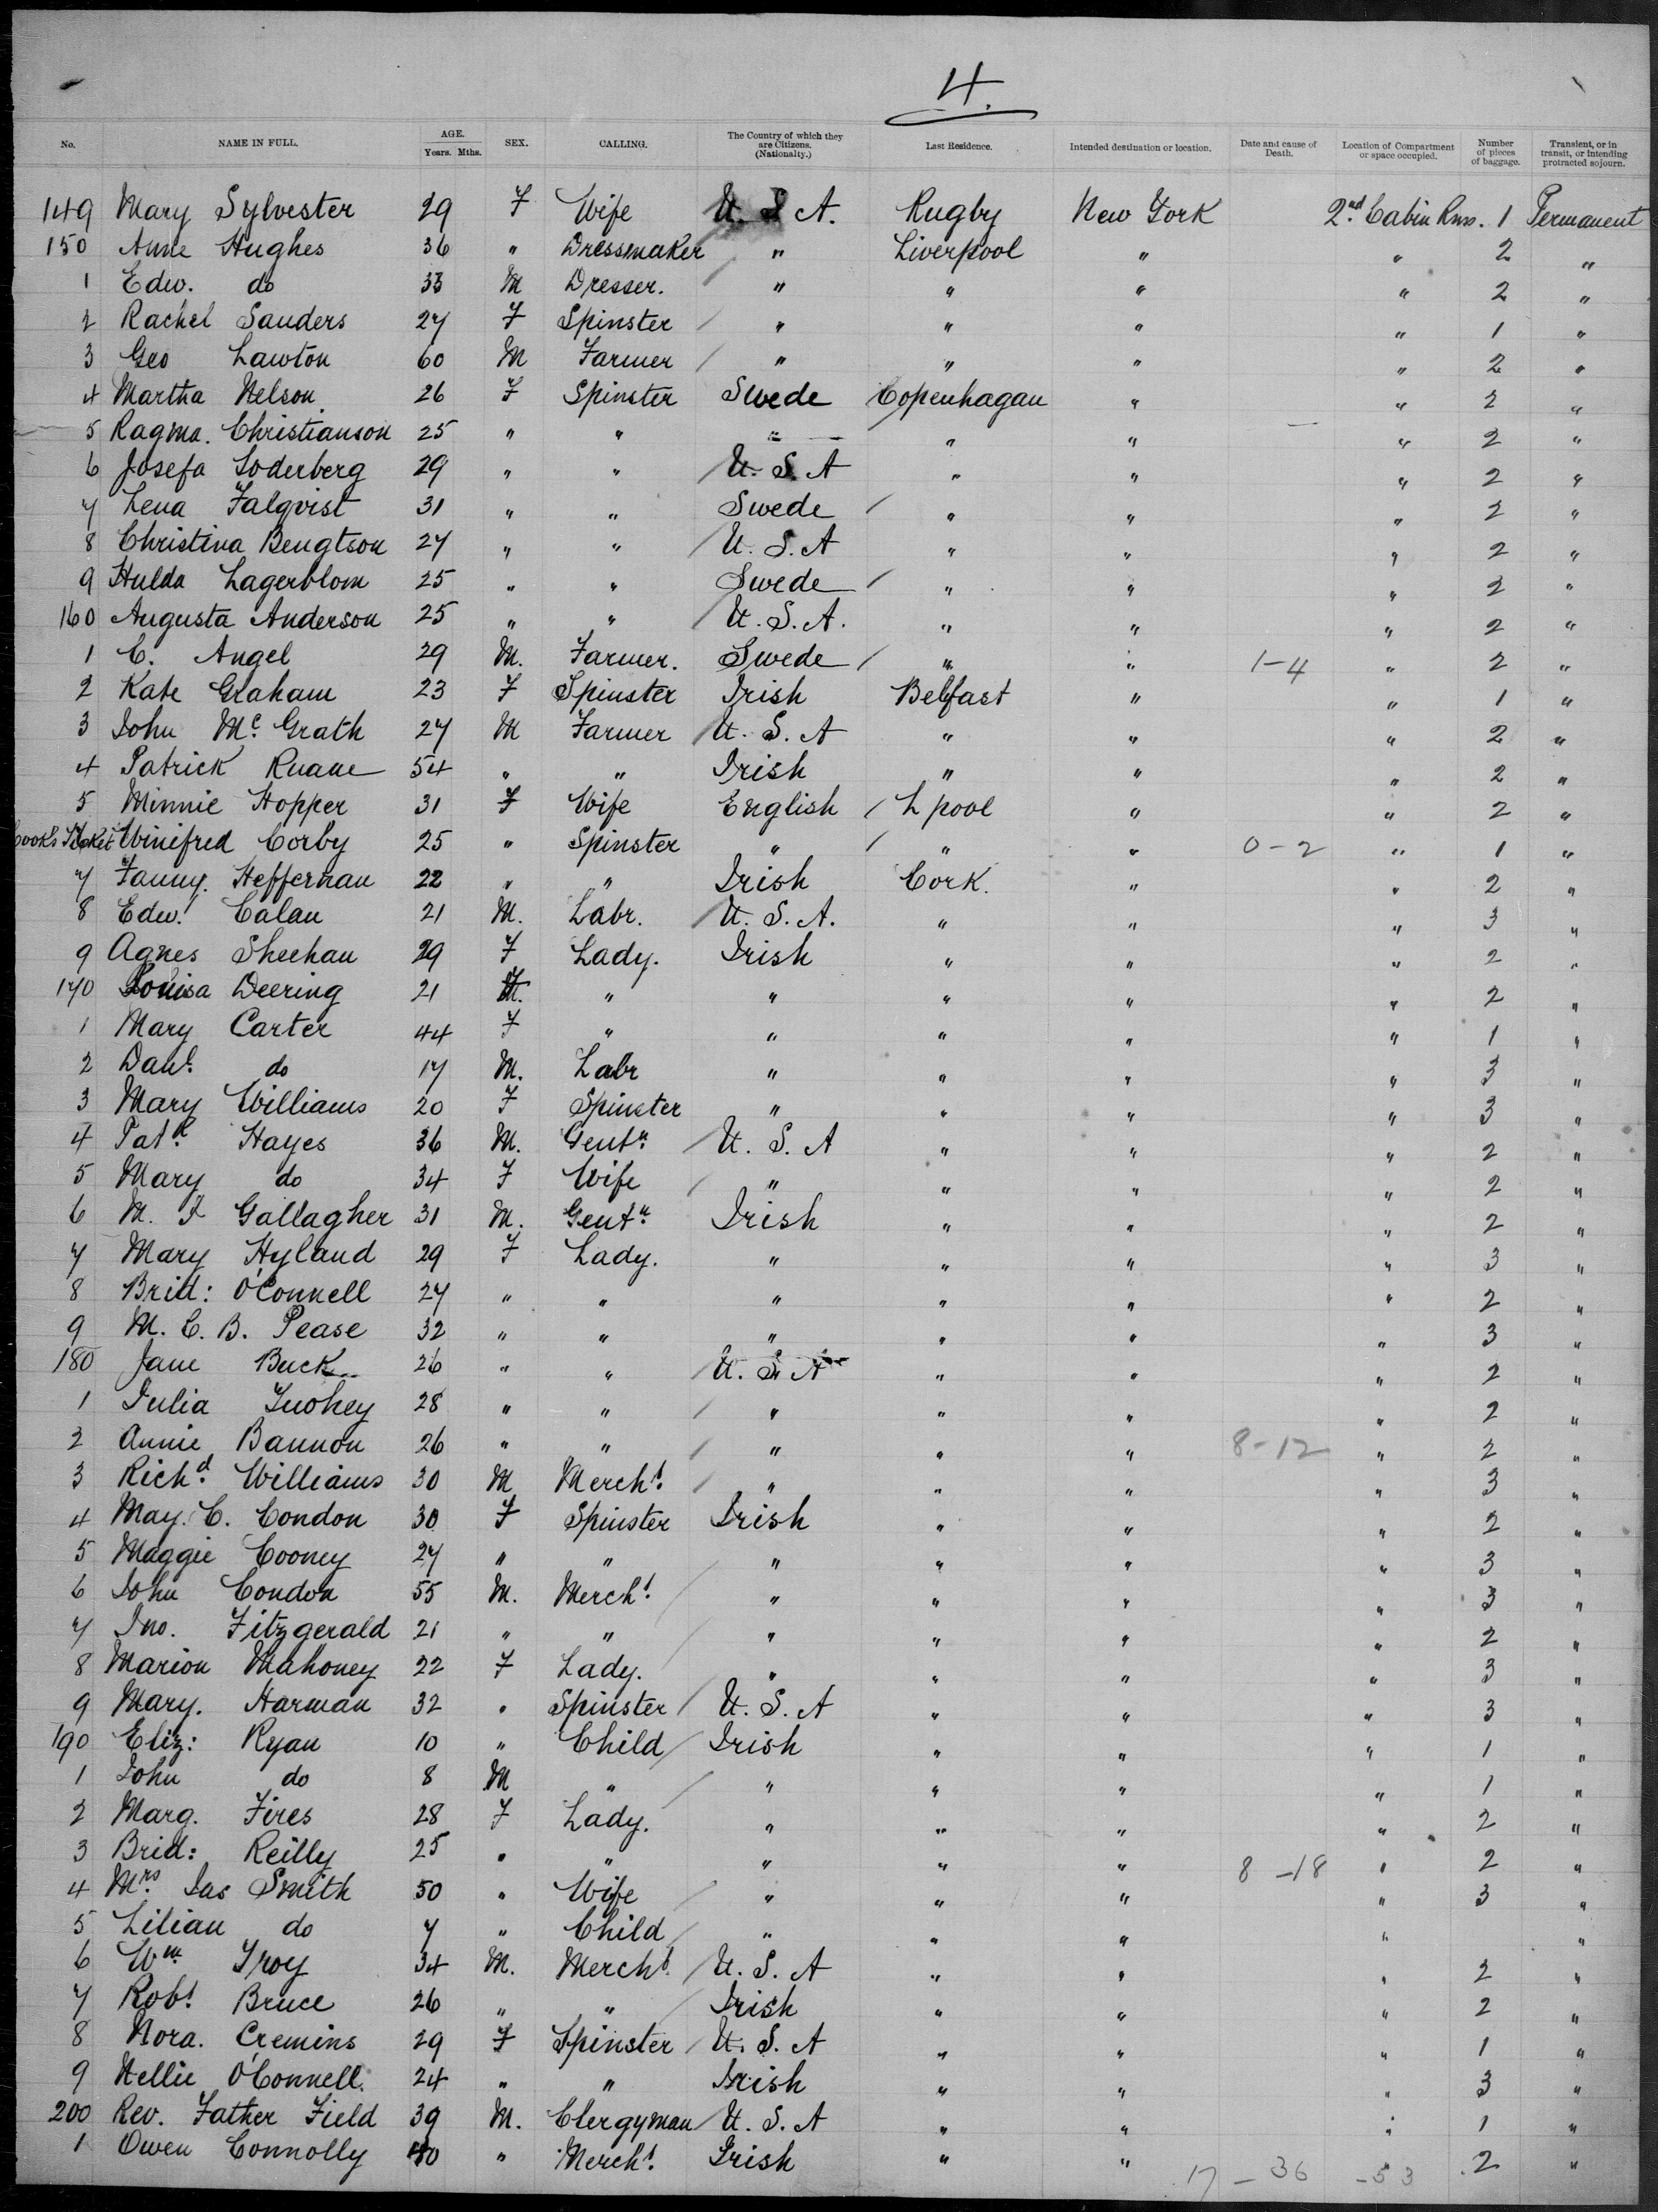 4.
No. NAME IN FULL. AGE. Years. Mths. SEX. CALLING. The Country of which they are Citizens. (Nationality.) Last Residence. Intended destination or location. Date and cause of Death. Location of Compartment or space occupied. Number of pieces of baggage. Transient, or in transit, or intending protracted sojourn.
149 Mary Sylvester 29 F Wife U. S. A. Rugby New York 2nd Cabin Rms. 1 Permanent
150 Anne Hughes 36 " Dressmaker " Liverpool " " 2 "
1 Edw. do 33 M Dresser. " " " " 2 "
2 Rachel Sanders 27 F Spinster / " " " " 1 "
3 Geo Lawton 60 M Farmer / " " " " 2 "
4 Martha Nelson 26 F Spinster Swede Copenhagan " " 2 "
5 Ragma. Christianson 25 " " " " " " 2 "
6 Josefa Soderberg 29 " " / U. S. A " " " 2 "
7 Lena Falqvist 31 " " Swede / " " " 2 "
8 Christina Bengtson 27 " " / U. S. A " " " 2 "
9 Hulda Lagerblom 25 " " Swede / " " " 2 "
160 Augusta Anderson 25 " " / U. S. A. " " " 2 "
1 C. Angel 29 M. Farmer. Swede / " " 1-4 " 2 "
2 Kate Graham 23 F Spinster Irish Belfast " " 1 "
3 John Mc. Grath 27 M Farmer / U. S. A " " " 2 "
4 Patrick Ruane 54 " " Irish " " " 2 "
5 Minnie Hopper 31 F Wife English / L pool " " 2 "
Cook's Ticket Winifred Corby 25 " Spinster " / " " 0-2 " 1 "
7 Fanny. Heffernan 22 " " Irish Cork. " " 2 "
8 Edwd. Calan 21 M. Labr. / U. S. A. " " " 3 "
9 Agnes Sheehan 29 F Lady. Irish " " " 2 "
170 Louisa Deering 21 " " " " " 2 "
1 Mary Carter 44 F " " " " " 1 "
2 Danl. do 17 M. Labr " " " " 3 "
3 Mary Williams 20 F Spinster " " " " 3 "
4 Patk. Hayes 36 M. Gentn. / U. S. A " " " 2 "
5 Mary do 34 F Wife / " " " " 2 "
6 M. F Gallagher 31 M. Gentn. Irish " " " 2 "
7 Mary Hyland 29 F Lady. " " " " 3 "
8 Brid: O'Connell 27 " " " " " " 2 "
9 M. C. B. Pease 32 " " " " " " 3 "
180 Jane Buck 26 " " / U. S. A " " " 2 "
1 Julia Tuohey 28 " " / " " " " 2 "
2 Annie Bannon 26 " " / " " " 8-12 " 2 "
3 Richd. Williams 30 M Mercht. / " " " " 3 "
4 May. C. Condon 30 F Spinster Irish " " " 2 "
5 Maggie Cooney 27 " " / " " " " 3 "
6 John Condon 55 M. Mercht. / " " " " 3 "
7 Jno. Fitzgerald 21 " " / " " " " 2 "
8 Marion Mahoney 22 F Lady. " " " " 3 "
9 Mary. Harman 32 " Spinster / U. S. A " " " 3 "
190 Eliz: Ryan 10 " Child / Irish " " " 1 "
1 John do 8 M " / " " " " 1 "
2 Marg. Fires 28 F Lady. " " " " 2 "
3 Brid: Reilly 25 " " " " " 8-18 " 2 "
4 Mrs. Jas Smith 50 " Wife / " " " " 3 "
5 Lilian do 7 " Child / " " " " "
6 Wm. Troy 34 M. Mercht. / U. S. A " " " 2 "
7 Robt. Bruce 26 " " / Irish " " " 2 "
8 Nora. Cremins 29 F Spinster / U. S. A " " " 1 "
9 Nellie O'Connell. 24 " " Irish " " " 3 "
200 Rev. Father Field 39 M. Clergyman / U. S. A " " " 1 "
1 Owen Connolly 40 " Mercht. Irish " " " 2 "
17 - 36 - 53